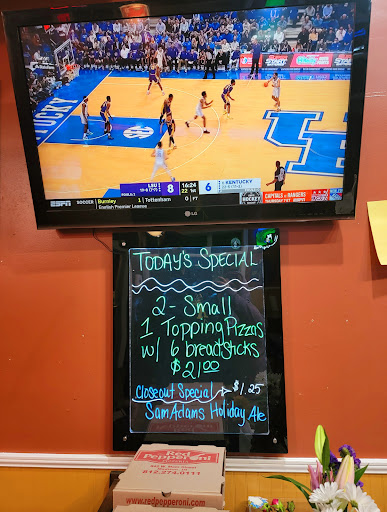 KENTUCKY
UK
LSU 8 16:24 6 KENTUCKY
ESPN SOCCER Burnley 1 Tottenham 0 FT
English Premier League
CAPITALS @ RANGERS
LG
TODAY'S SPECIAL
2 - Small
1 Topping Pizzas
w/ 6 breadsticks
$21.00
Closeout Special $1.25
Sam Adams Holiday Ale
Red
Pepperoni
812.274.0111
www.redpepperoni.com